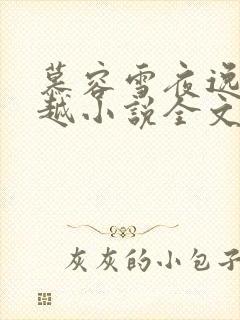 慕容雪夜逸
越小说全文
灰灰的小包子